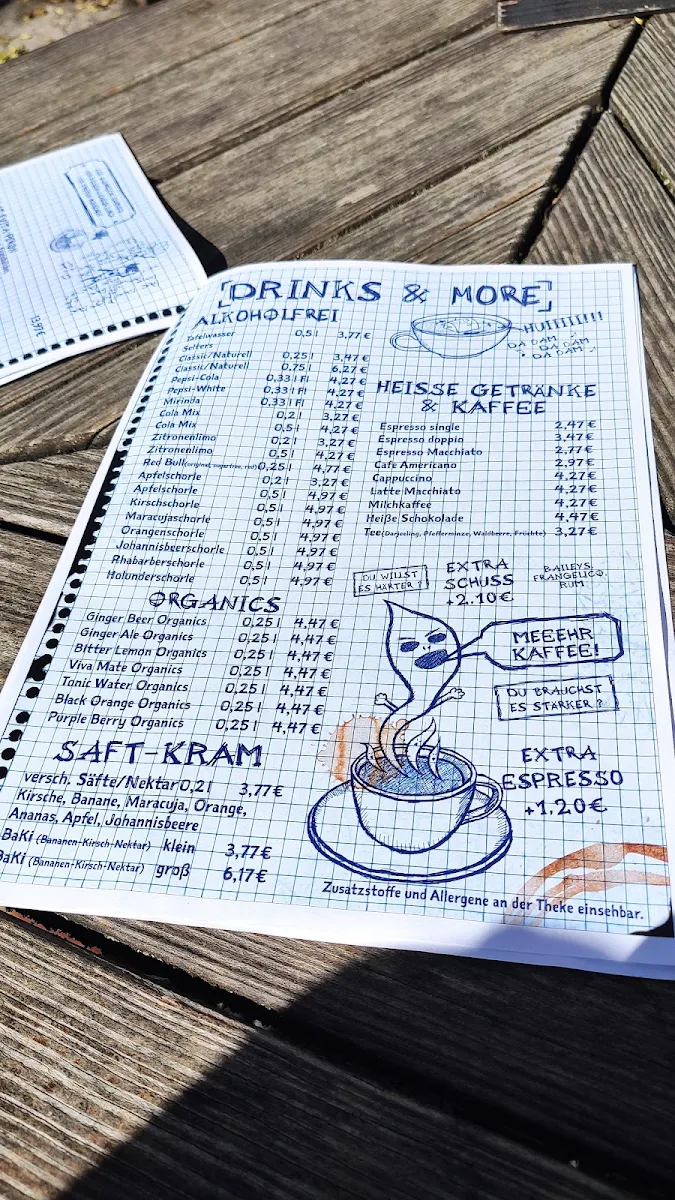 [DRINKS & MORE]
ALKOHOLFREI
Tafelwasser 0,5 l 3,77 €
Selters
Classic/Naturell 0,25 l 3,47 €
Classic/Naturell 0,75 l 6,27 €
Pepsi-Cola 0,33 l Fl 4,27 €
Pepsi-White 0,33 l Fl 4,27 €
Mirinda 0,33 l Fl 4,27 €
Cola Mix 0,2 l 3,27 €
Cola Mix 0,5 l 4,27 €
Zitronenlimo 0,2 l 3,27 €
Zitronenlimo 0,5 l 4,27 €
Red Bull (original, sugarfree, red) 0,25 l 4,77 €
Apfelschorle 0,2 l 3,27 €
Apfelschorle 0,5 l 4,97 €
Kirschschorle 0,5 l 4,97 €
Maracujaschorle 0,5 l 4,97 €
Orangenschorle 0,5 l 4,97 €
Johannisbeerschorle 0,5 l 4,97 €
Rhabarberschorle 0,5 l 4,97 €
Holunderschorle 0,5 l 4,97 €
ORGANICS
Ginger Beer Organics 0,25 l 4,47 €
Ginger Ale Organics 0,25 l 4,47 €
Bitter Lemon Organics 0,25 l 4,47 €
Viva Mate Organics 0,25 l 4,47 €
Tonic Water Organics 0,25 l 4,47 €
Black Orange Organics 0,25 l 4,47 €
Purple Berry Organics 0,25 l 4,47 €
SAFT-KRAM
versch. Säfte/Nektar 0,2 l 3,77 €
Kirsche, Banane, Maracuja, Orange,
Ananas, Apfel, Johannisbeere
BaKi (Bananen-Kirsch-Nektar) klein 3,77 €
BaKi (Bananen-Kirsch-Nektar) groß 6,17 €
HUIIIIIII!
DA DAM
DA DAM
DA DAM
HEISSE GETRÄNKE
& KAFFEE
Espresso single 2,47 €
Espresso doppio 3,47 €
Espresso Macchiato 2,77 €
Cafe Americano 2,97 €
Cappuccino 4,27 €
Latte Macchiato 4,27 €
Milchkaffee 4,27 €
Heiße Schokolade 4,47 €
Tee (Darjeeling, Pfefferminze, Waldbeere, Früchte) 3,27 €
DU WILLST
ES HÄRTER?
EXTRA
SCHUSS
+2.10 €
BAILEYS,
FRANGELICO,
RUM
MEEEHR
KAFFEE!
DU BRAUCHST
ES STÄRKER?
EXTRA
ESPRESSO
+1.20 €
Zusatzstoffe und Allergene an der Theke einsehbar.